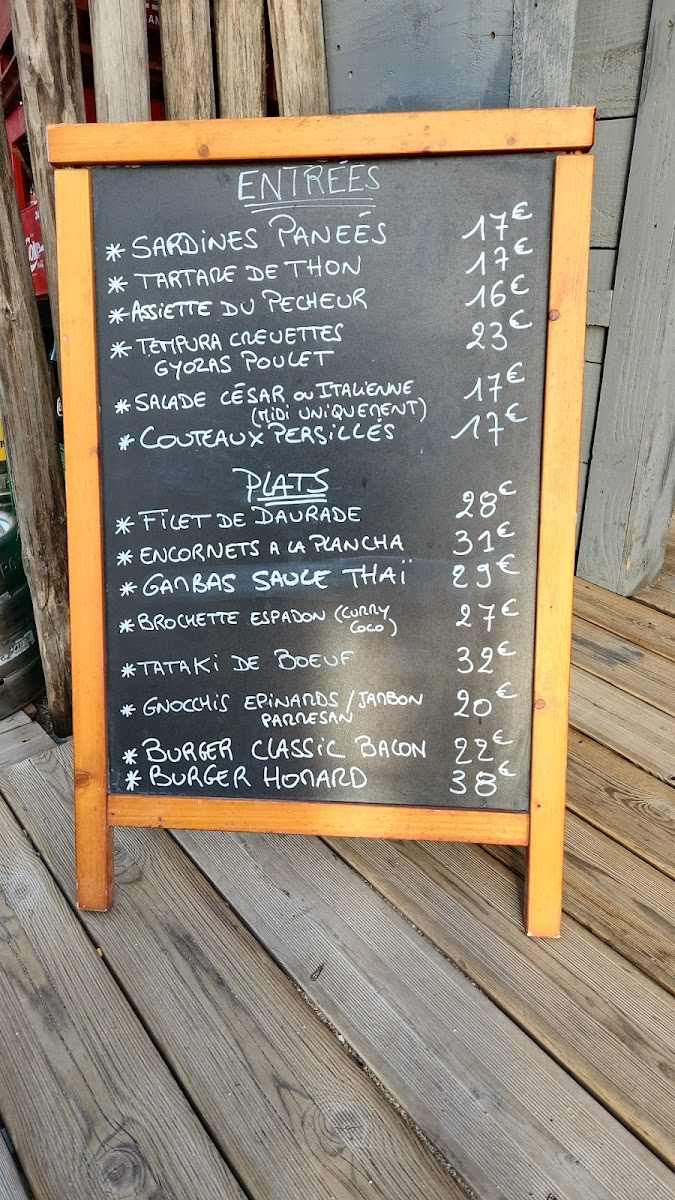 ENTRÉES
* SARDINES PANEÉS 17€
* TARTARE DE THON 17€
* ASSIETTE DU PECHEUR 16€
* TEMPURA CREVETTES 23€
GYOZAS POULET
* SALADE CÉSAR OU ITALIENNE 17€
(MIDI UNIQUEMENT)
* COUTEAUX PERSILLÉS 17€
PLATS
* FILET DE DAURADE 28€
* ENCORNETS A LA PLANCHA 31€
* GAMBAS SAUCE THAÏ 29€
* BROCHETTE ESPADON (CURRY 27€
COCO)
* TATAKI DE BOEUF 32€
* GNOCCHIS EPINARDS / JAMBON 20€
PARMESAN
* BURGER CLASSIC BACON 22€
* BURGER HOMARD 38€